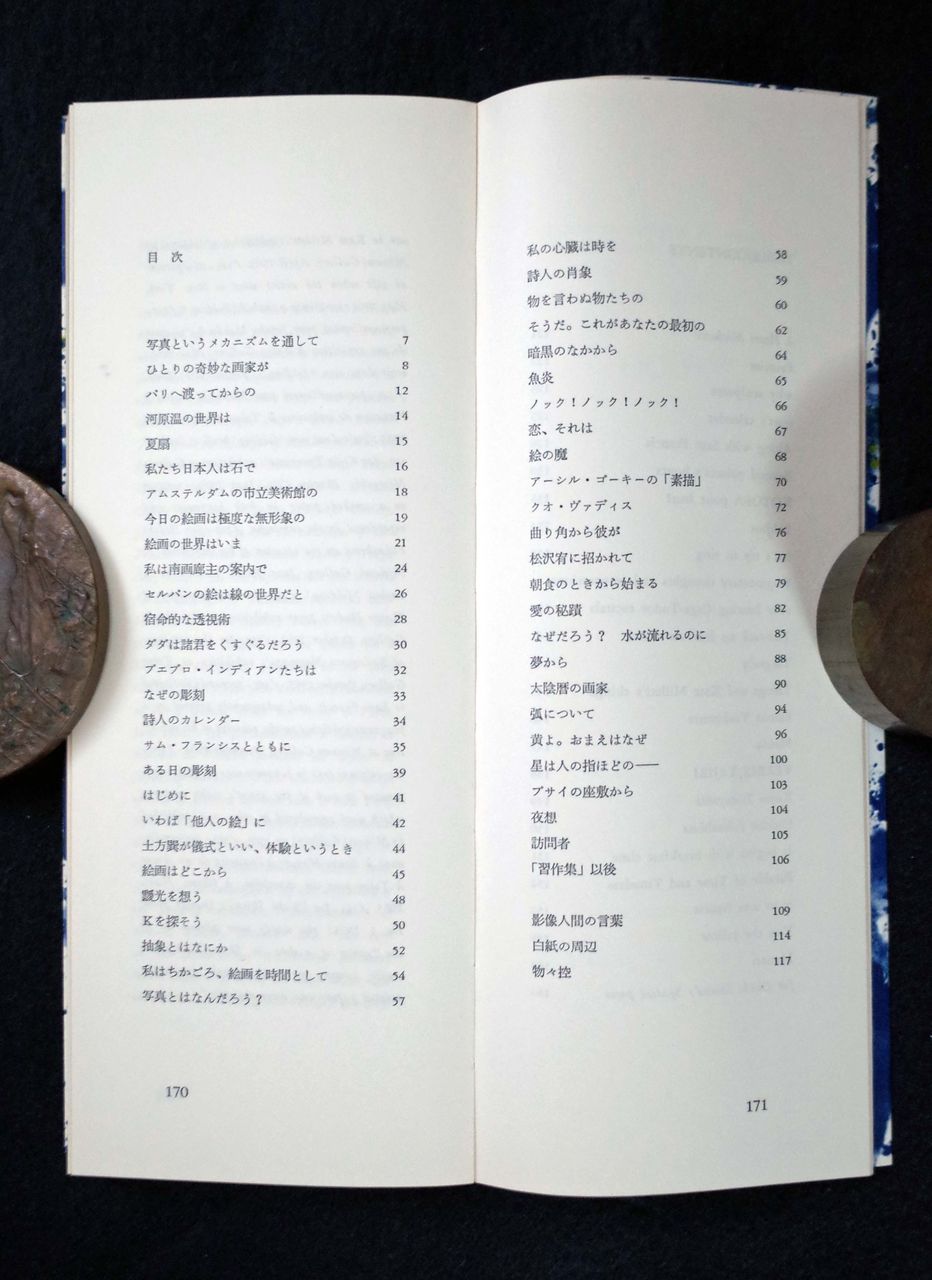 目次
写真というメカニズムを通して 7
ひとりの奇妙な画家が 8
パリへ渡ってからの 12
河原温の世界は 14
夏扇 15
私たち日本人は石で 16
アムステルダムの市立美術館の 18
今日の絵画は極度な無形象の 19
絵画の世界はいま 21
私は南画廊主の案内で 24
セルパンの絵は線の世界だと 26
宿命的な透視術 28
ダダは諸君をくすぐるだろう 30
プエブロ・インディアンたちは 32
なぜの彫刻 33
詩人のカレンダー 34
サム・フランシスとともに 35
ある日の彫刻 39
はじめに 41
いわば「他人の絵」に 42
土方巽が儀式といい、体験というとき 44
絵画はどこから 45
靉光を想う 48
Kを探そう 50
抽象とはなにか 52
私はちかごろ、絵画を時間として 54
写真とはなんだろう？ 57
170
私の心臓は時を 58
詩人の肖象 59
物を言わぬ物たちの 60
そうだ。これがあなたの最初の 62
暗黒のなかから 64
魚炎 65
ノック！ノック！ノック！ 66
恋、それは 67
絵の魔 68
アーシル・ゴーキーの「素描」 70
クオ・ヴァディス 72
曲り角から彼が 76
松沢宥に招かれて 77
朝食のときから始まる 79
愛の秘蹟 82
なぜだろう？　水が流れるのに 85
夢から 88
太陰暦の画家 90
弧について 94
黄よ。おまえはなぜ 96
星は人の指ほどの―― 100
プサイの座敷から 103
夜想 104
訪問者 105
「習作集」以後 106
影像人間の言葉 109
白紙の周辺 114
物々控 117
171